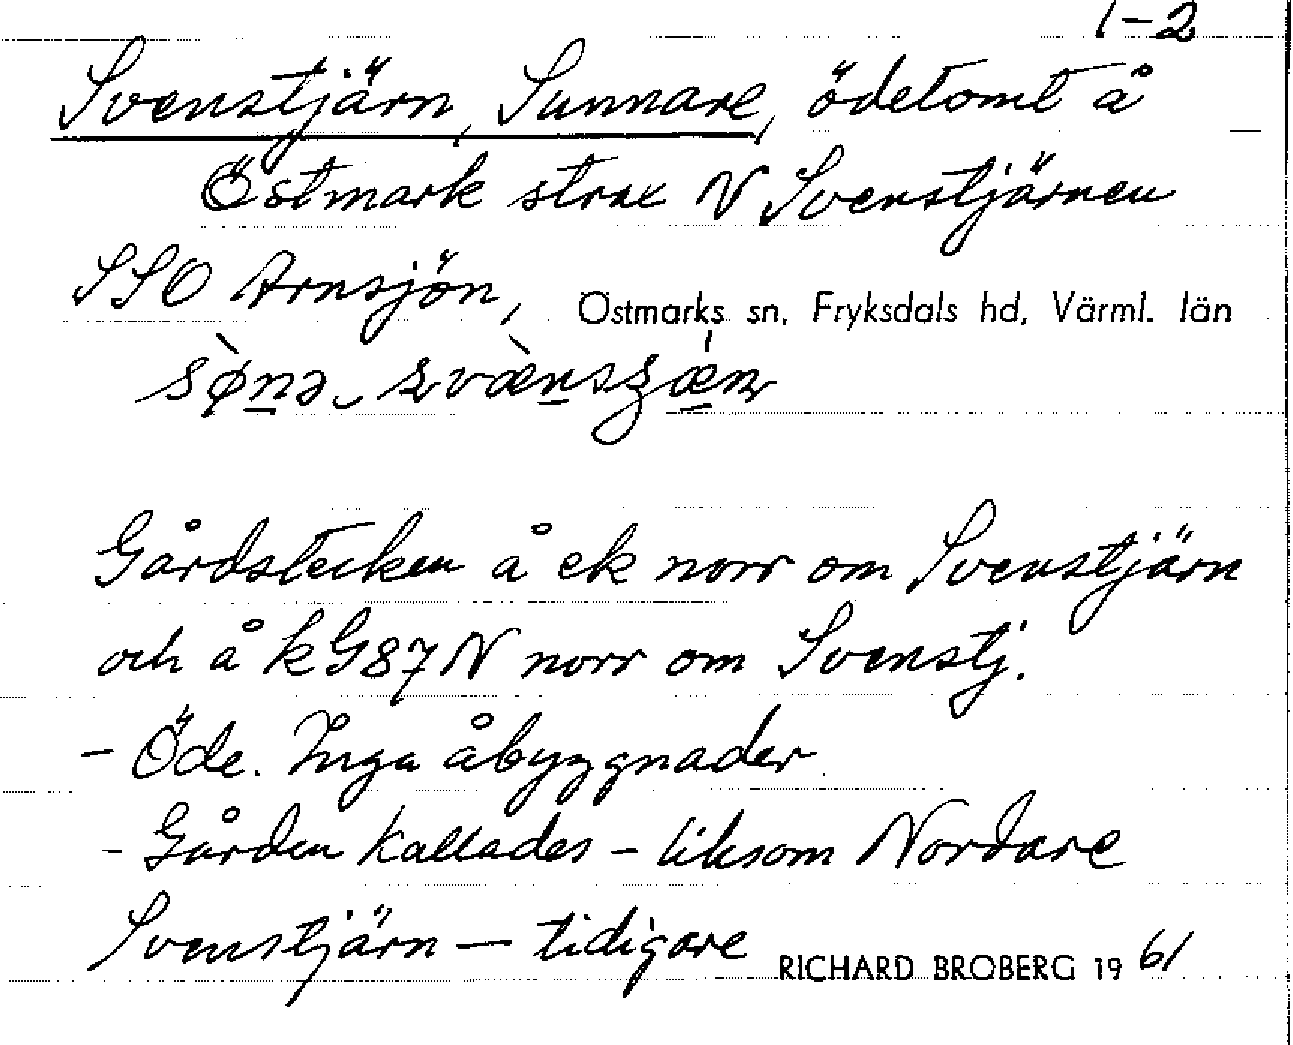 1-2
Svenstjärn, Sunnare, ödetomt å
Östmark strax N Svenstjärnen
SSO Arnsjön, Östmarks sn, Fryksdals hd, Värml. län
Gårdstecken å ek norr om Svenstjärn
och å kG87N norr om Svenstj.
- Öde. Inga åbyggnader.
- Gården kallades - liksom Nordare
Svenstjärn — tidigare RICHARD BROBERG 1961